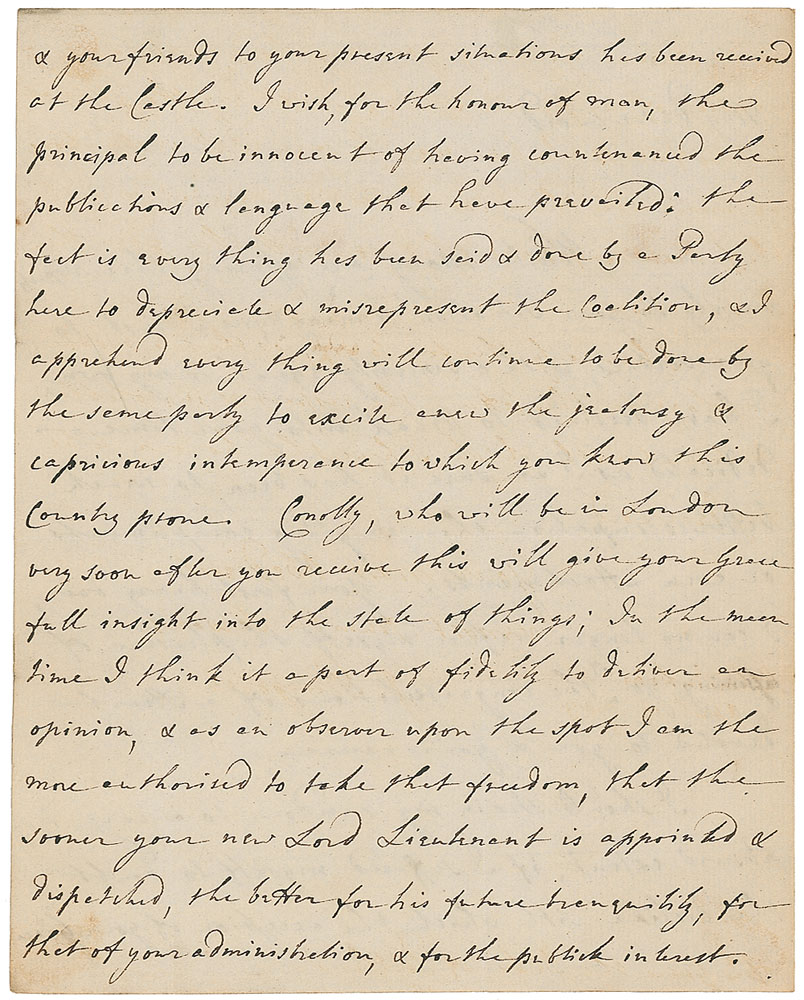 & your friends to your present situations has been received
at the Castle. I wish, for the honour of man, the
principal to be innocent of having countenanced the
publications & language that have prevailed: the
fact is every thing has been said & done by a Party
here to depreciate & misrepresent the Coalition, & I
apprehend every thing will continue to be done by
the same party to excite anew the jealousy &
capricious intemperance to which you know this
Country prone. Conolly, who will be in London
very soon after you receive this will give your Grace
full insight into the state of things; In the mean
time I think it a part of fidelity to deliver an
opinion, & as an observer upon the spot I am the
more authorised to take that freedom, that the
sooner your new Lord Lieutenant is appointed &
dispatched, the better for his future tranquility, for
that of your administration, & for the publick interest.